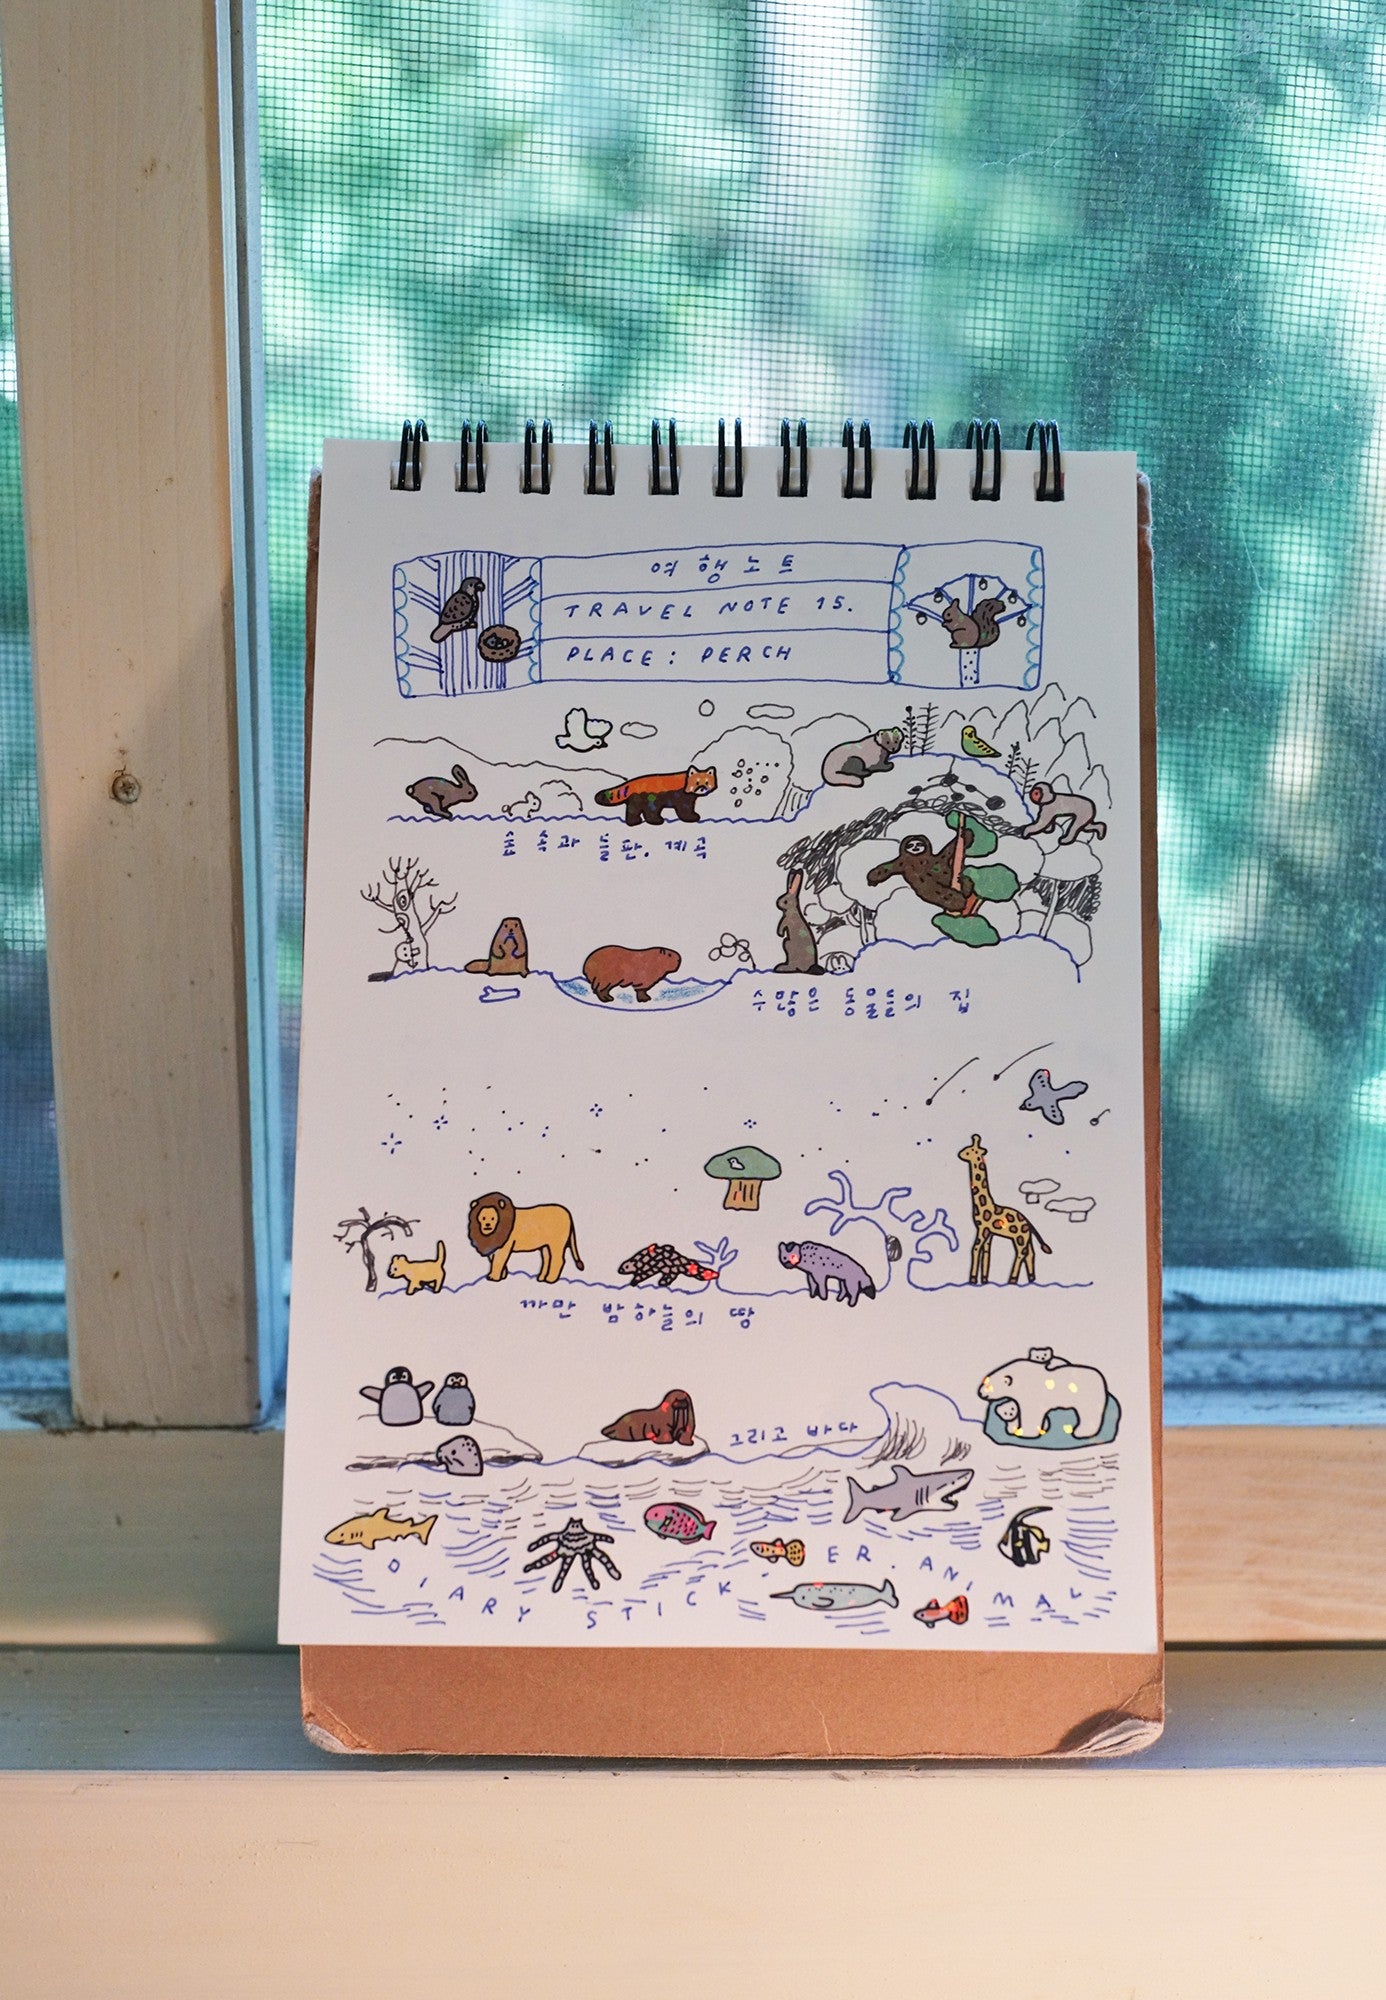 여행노트
TRAVEL NOTE 15.
PLACE: PERCH
숲 속과 들판, 계곡
수많은 동물들의 집
까만 밤하늘의 땅
그리고 바다
DIARY STICK·ER·ANIMAL